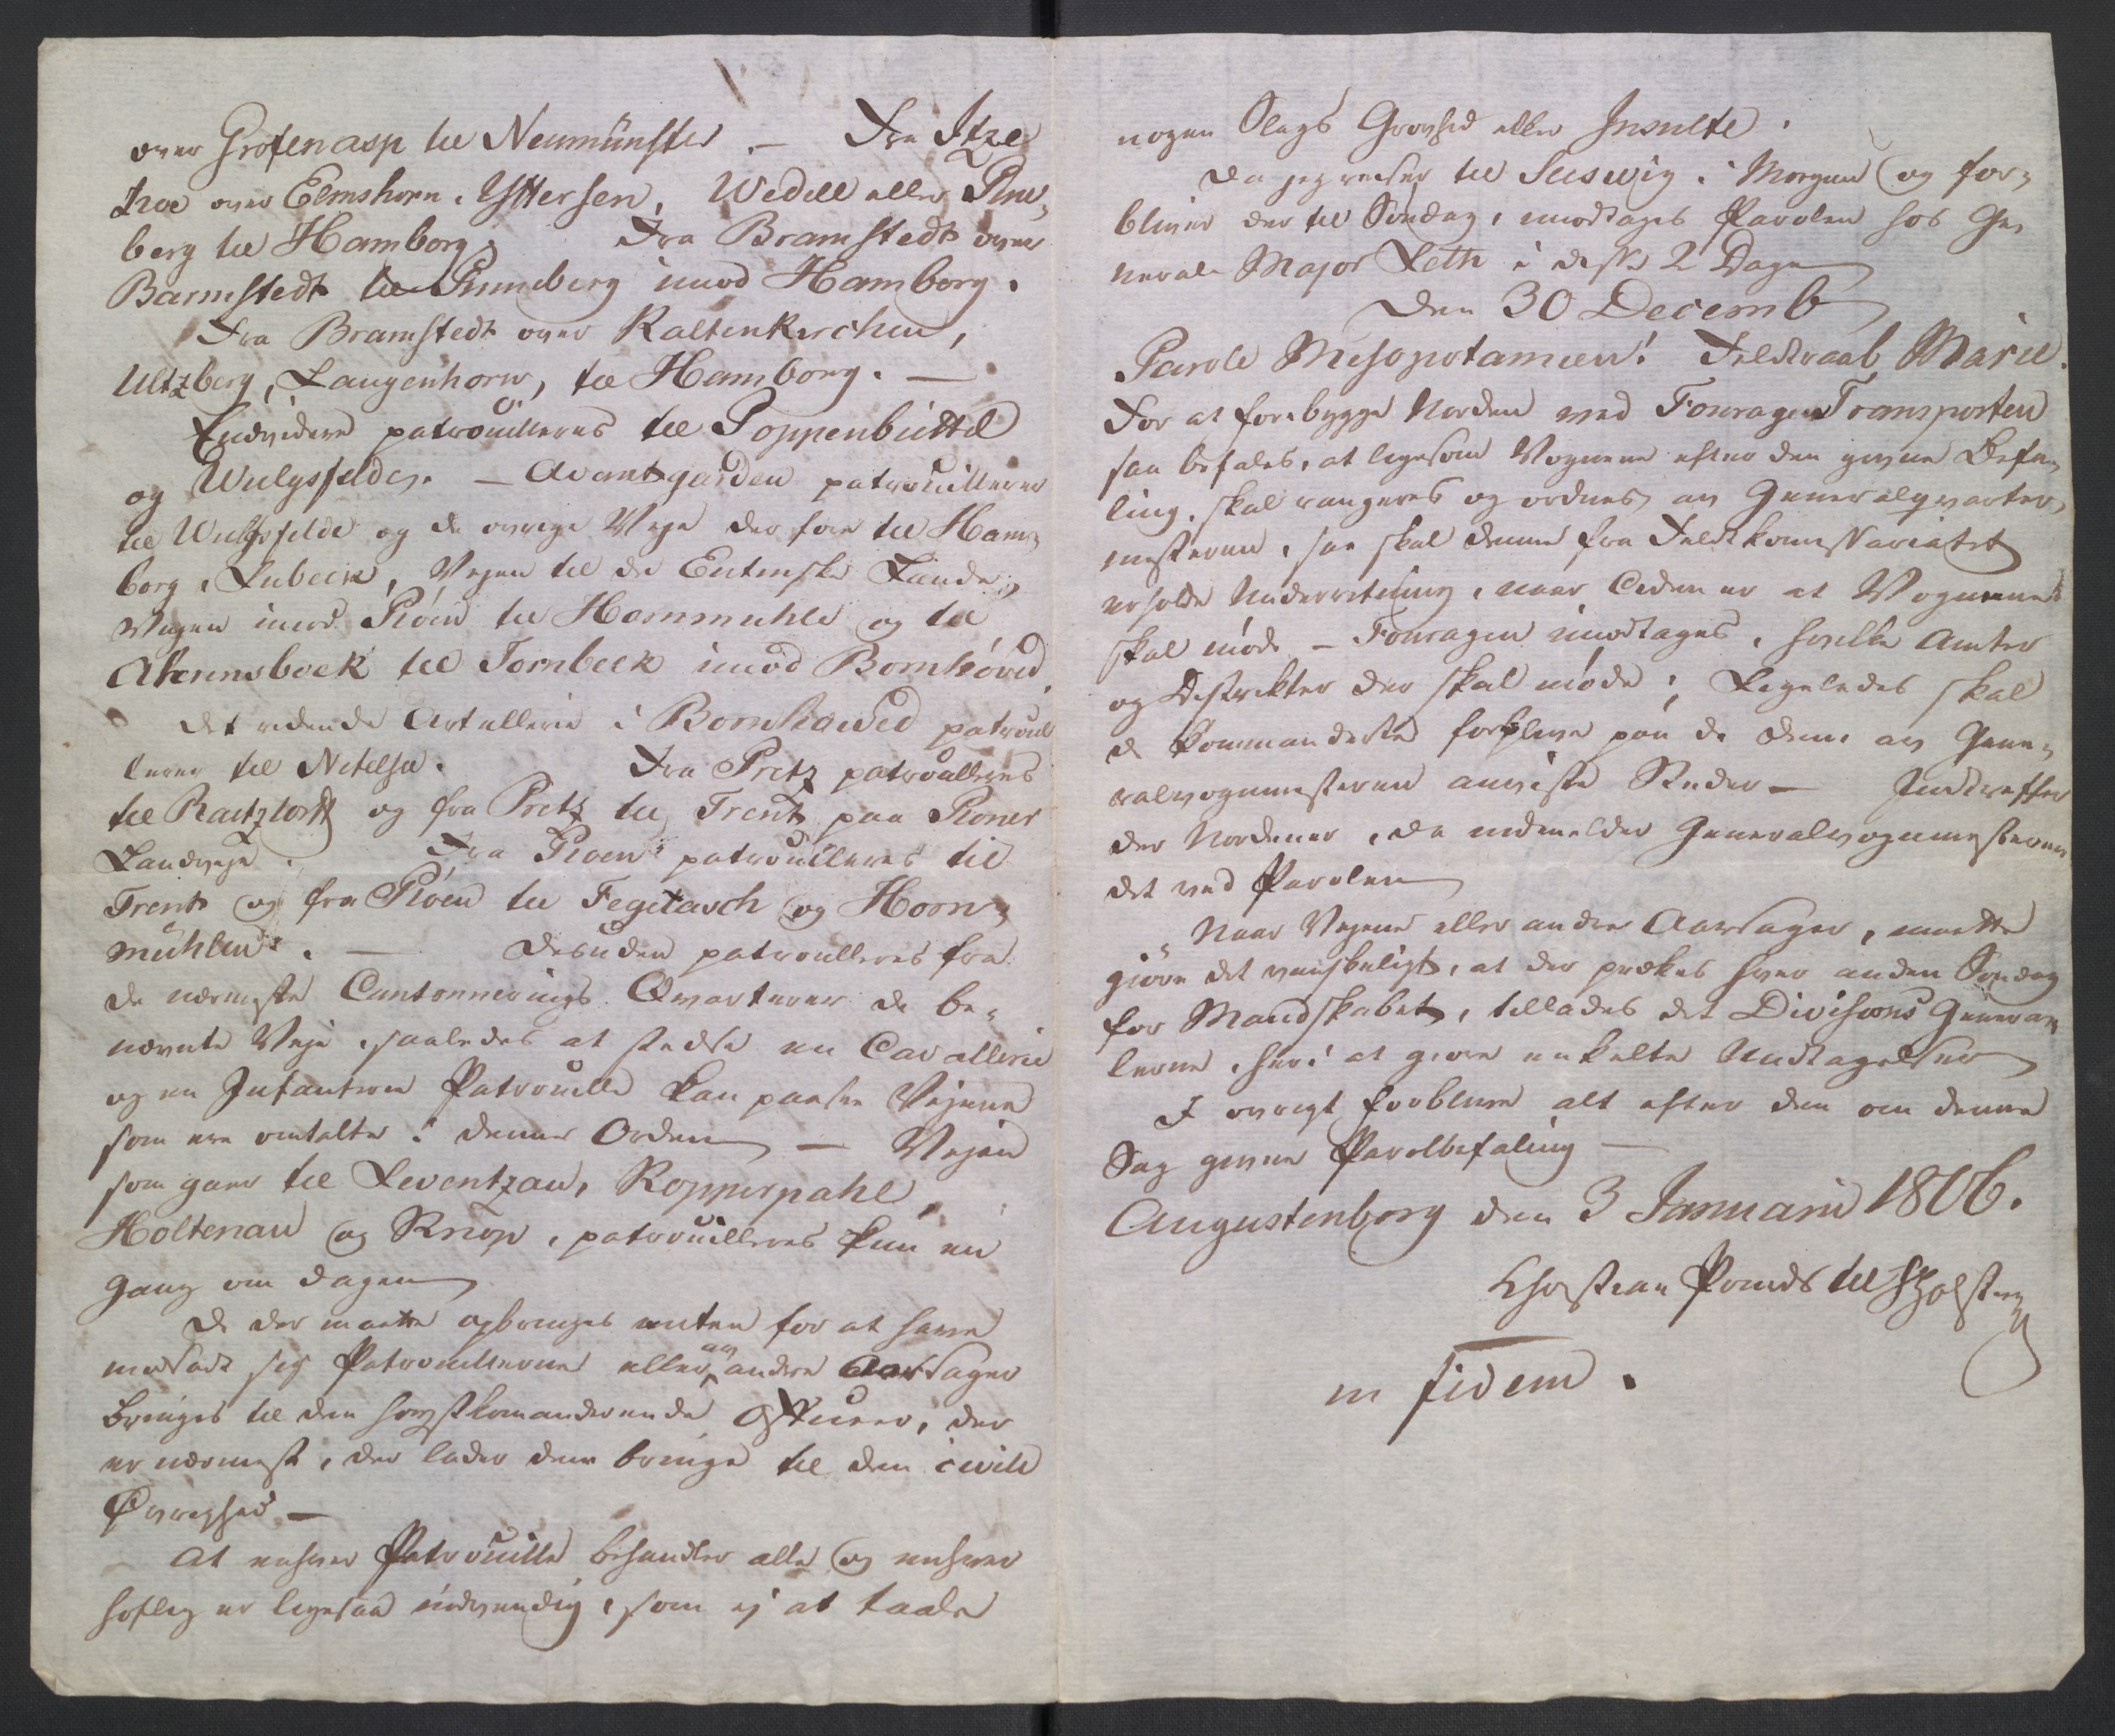 over Grosenasp til Neumünster. — Fra Itze
hoe over Elmshorn, Yttersen, Wedele eller Pine,
berg til Hamborg. Fra Bramstedt over
Barmstedt til Pinneberg imod Hamborg.
Fra Bramstedt over Kaltenkirchen,
Ultzberg, Langenhorn, til Hamborg. —
Endvidere patrouilleres til Poppenbüttel
og Wulgsfelde. — Avantgarden patrouillerer
til Wulfsfelde og de øvrige Veje der føre til Ham-
borg, Lübeck, Vejen til de Eutinske Lande,
Vejen imod Pløen til Hornmuhle og til
Ahrensboek til Tornbeck imod Bornhöved
Det ridende Artillerie i Bornhøved patrouil
lerer til Netelsee. Fra Pretz patroulleres
til Raitztorff og fra Pretz til Trent paa Pløner
Landveje. Fra Pløen patrouilleres til
Trent og fra Pløen til Fegetasch og Horn-
mühlen. — Desuden patroulleres fra
de nærmeste Cantonnerings Qvarterer de be-
nævnte Veje, saaledes at stedse en Cavallerie
og en Infanterie Patrouille kan passere Vejene
som ere omtalte i denne Orden — Vejen
som gaaer til Leventzau, Kopperpahl,
Holtenau og Knop, patrouilleres kun en
gang om Dagen
De der maatte opbringes enten for at have
modsadt sig Patrouillerne eller af andre Aarsager
bringes til den høystkomanderende Officeer, der
er nærmest, der lader dem bringe til den civile
Øvrighed —
At enhver Patrouille behandler alle og enhver
høflig er ligesaa nødvendig, som ej at taale
nogen Slags Grovhed eller Insulte.
Da jeg reiser til Slesvig i Morgen og for-
bliver der til Søndag, modtages Parolen hos Ge-
neral Major Leth i disse 2 Dage
Den 30 Decemb
Parole Mesopotamien! Feldtraab Marie.
For at forebygge Uorden ved Fourage Transporten
saa befales, at ligesom Vognene efter den givne Befa-
ling, skal rangeres og ordnes av Generalqvarter-
mesteren, saa skal denne fra Feldtkomissariatet
erholde Underretning, naar Tiden er at Vognene
skal møde — Fouragen modtages, hvilke Amter
og Districkter der skal møde; Ligeledes skal
de kommanderte forblive paa de dem av Gene-
ralvognmesteren anviste Steder — Indtreffer
der Uordener, da indmelder Generalvognmesteren
det ved Parolen
Naar Vejene eller andre Aarsager, maatte
giøre det vanskeligt, at der prækes hver anden Søndag
for Mandskabet, tillades det Divisions Genera-
lerne, heri at giøre enkelte Undtagelser
I øvrigt forblive alt efter den om denne
Sag givne Parolbefaling —
Augustenborg den 3 Januarii 1806.
Christian Prinds til SHolsten
in fidem.